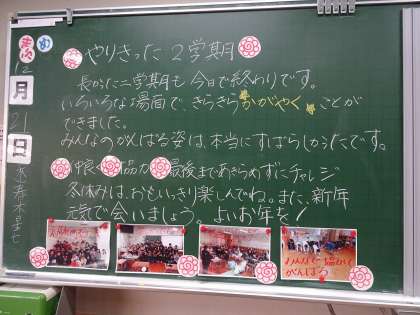 やりきった2学期
長かった二学期も今日で終わりです。
いろいろな場面で、きらきらかがやくことが
できました。
みんなのがんばる姿は、本当にすばらしかったです。
仲良く 協力 最後まであきらめずにチャレンジ
冬休みは、おもいっきり楽しんでね。また、新年
元気で会いましょう。よいお年を!
12
月
21
日
みんなで協力
がんばろう